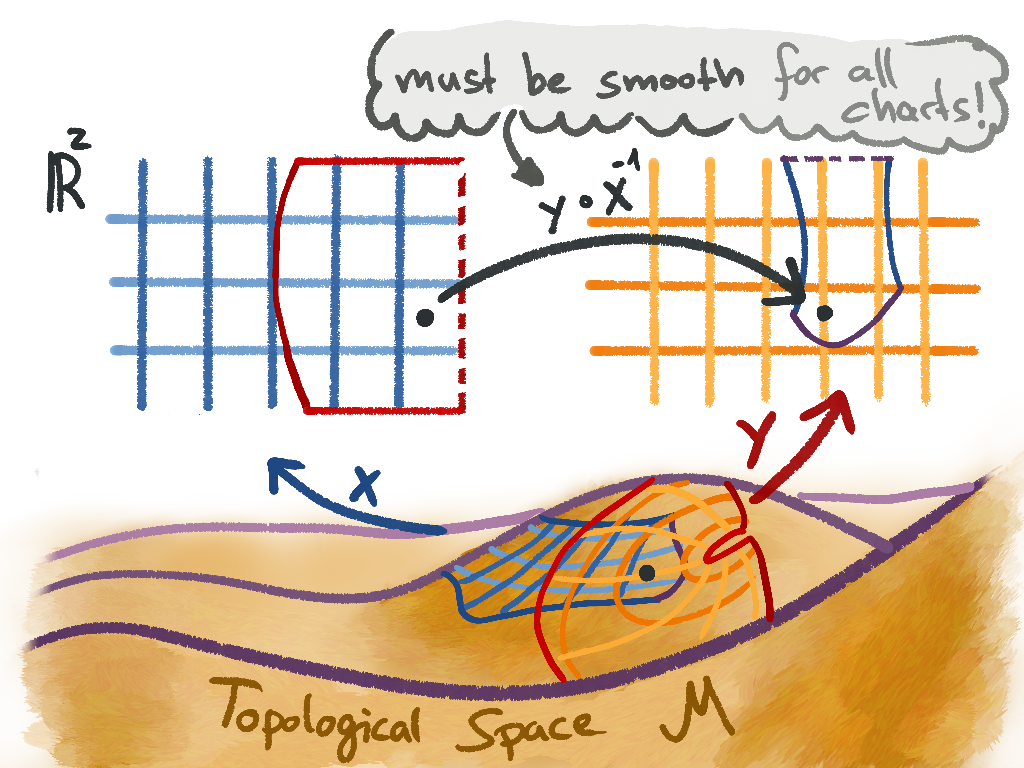 must be smooth for all
charts!
ℝ²
y ∘ x⁻¹
x
y
Topological Space M